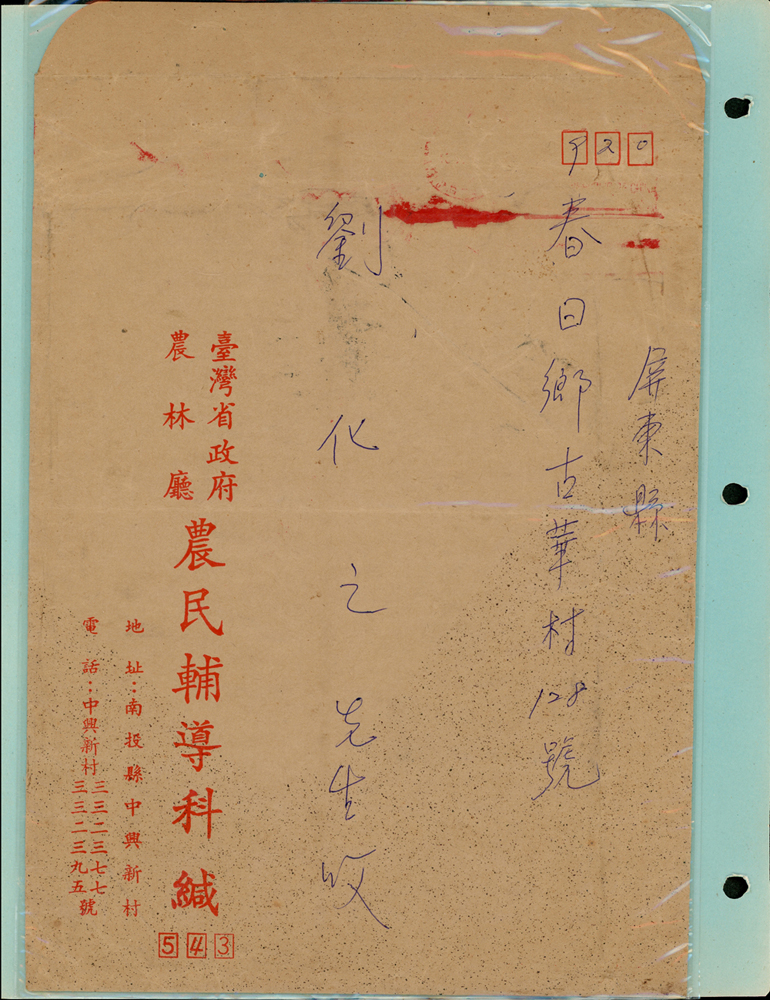 920
屏東縣
春日鄉古華村128號
劉化之先生收
臺灣省政府
農林廳
農民輔導科緘
543
地址：南投縣中興新村
電話：中興新村三三二三七七
三三二三九五號